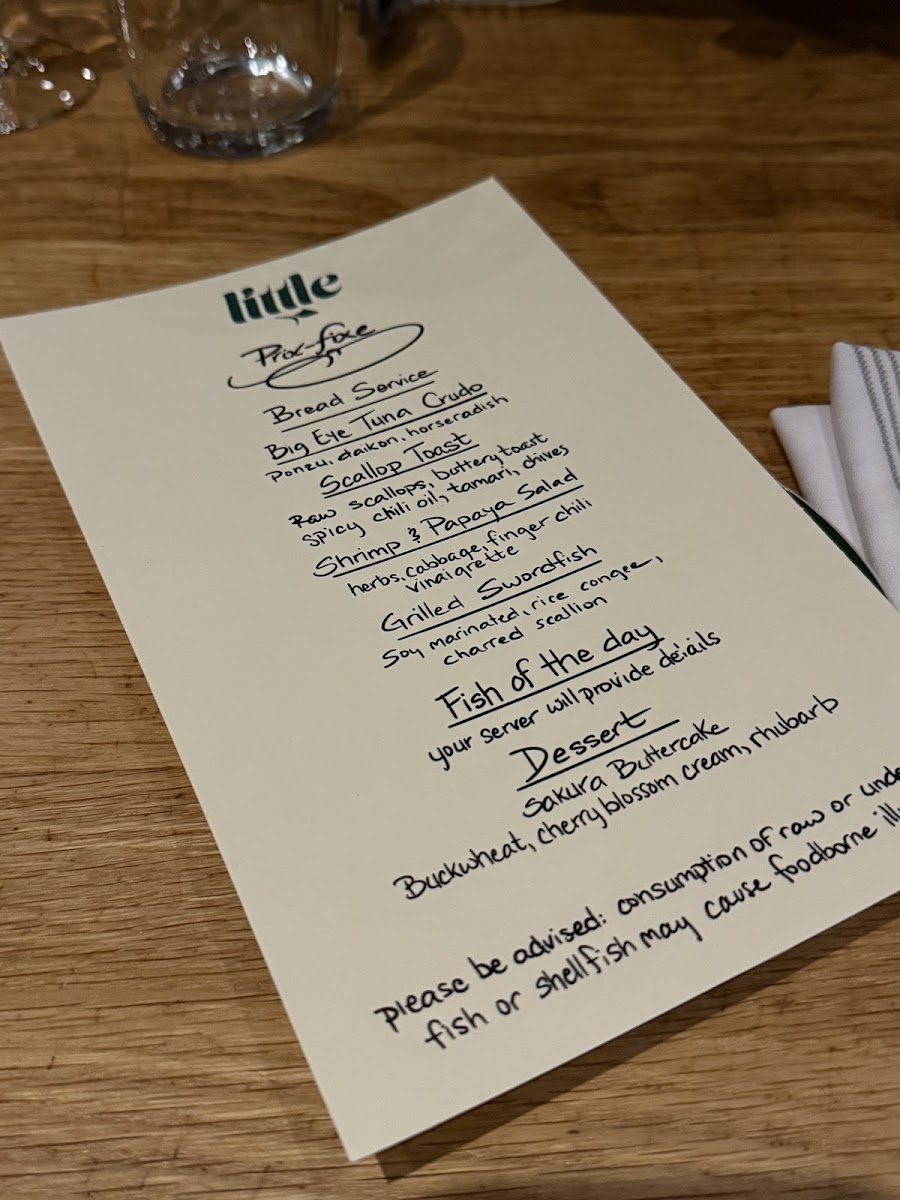 little
Prix-fixe
Bread Service
Big Eye Tuna Crudo
Ponzu, daikon, horseradish
Scallop Toast
Raw scallops, buttery toast
spicy chili oil, tamari, chives
Shrimp & Papaya Salad
herbs, cabbage, finger chili
vinaigrette
Grilled Swordfish
Soy marinated, rice congee,
charred scallion
Fish of the day
your server will provide details
Dessert
Sakura Buttercake
Buckwheat, cherry blossom cream, rhubarb
please be advised: consumption of raw or
fish or shellfish may cause foodborne